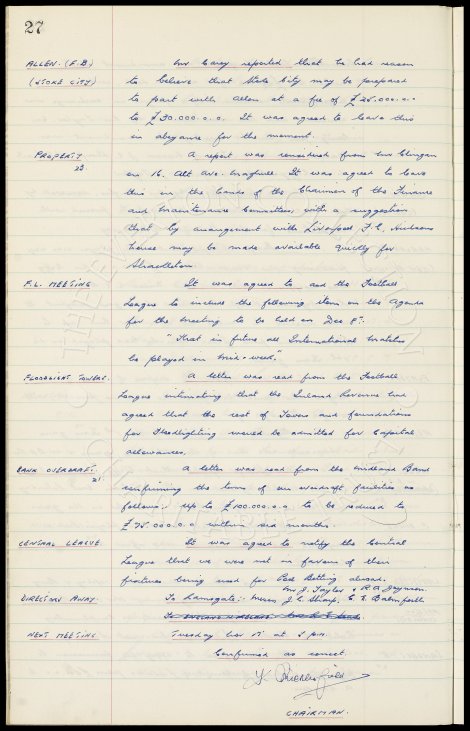 27
ALLEN. (F.B) Mr Carey reported that he had reason
(STOKE CITY) to believe that Stoke City may be prepared
to part with Allen at a fee of £25.000.0.0
to £30.000.0.0. It was agreed to leave this
in abeyance for the moment.
PROPERTY A report was received from Mr
on 16. Alt Ave. Maghull. It was agreed to leave
this in the hands of the Chairman of the Finance
and Maintenance Committees, with a suggestion
that by arrangement with Liverpool F.C. Hudsons
house may be made available quickly for
F.L. MEETING It was agreed to ask the Football
League to include the following item on the Agenda
for the meeting to be held on Dec 8th:-
"That in future all International Matches
be played in mid-week."
FLOODLIGHT TOWERS. A letter was read from the Football
League intimating that the Inland Revenue had
agreed that the cost of Towers and foundations
for Floodlighting would be admitted for Capital
allowances.
BANK OVERDRAFT. A letter was read from the Midland Bank
confirming the terms of our overdraft facilities as
follows: up to £100.000.0.0 to be reduced to
£75.000.0.0 within six months.
CENTRAL LEAGUE. It was agreed to notify the Central
League that we were not in favour of their
fixtures being used for Pool Betting abroad.
Mr J. Taylor & R.A. Joynson.
DIRECTORS AWAY. To Ramsgate:- Messrs J.C. Sharp, C.E. Balmforth
NEXT MEETING. Tuesday Nov at 5 pm.
Confirmed as correct.
CHAIRMAN.